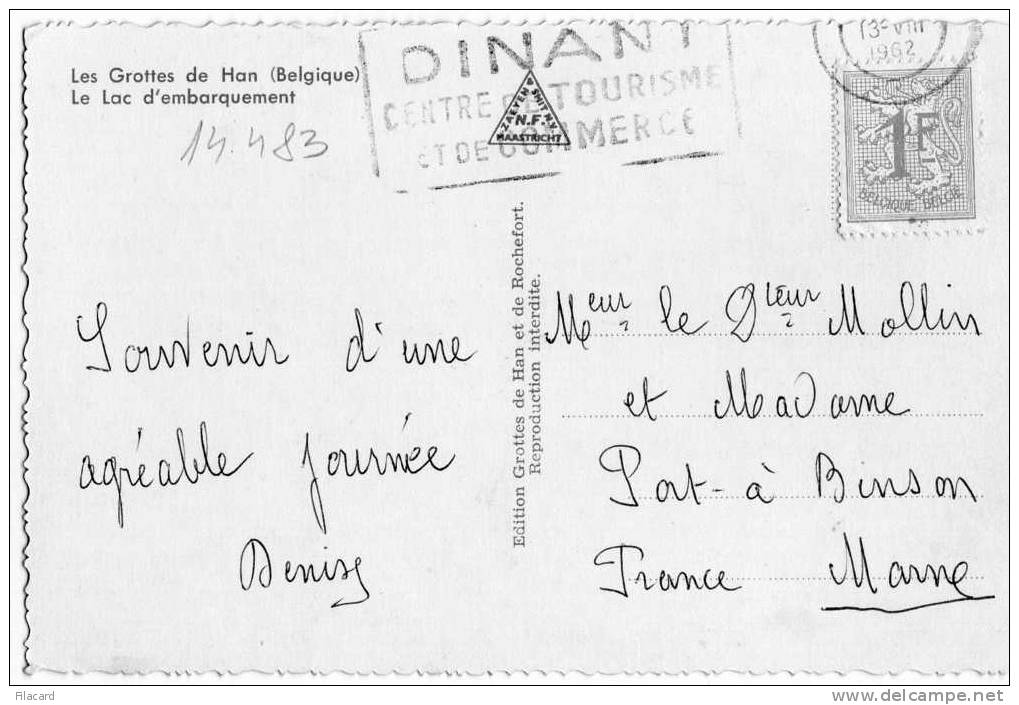 Les Grottes de Han (Belgique)
Le Lac d'embarquement
14.483
DINANT
CENTRE DE TOURISME
ET DE COMMERCE
N.F.
MAASTRICHT
13-VIII
1962
1F
BELGIQUE-BELGIE
Edition Grottes de Han et de Rochefort.
Reproduction interdite.
Souvenir d'une
agréable journée
Denise
Meur le Dteur Mollin
et Madame
Port-à Binson
France Marne
Filacard
www.delcampe.net